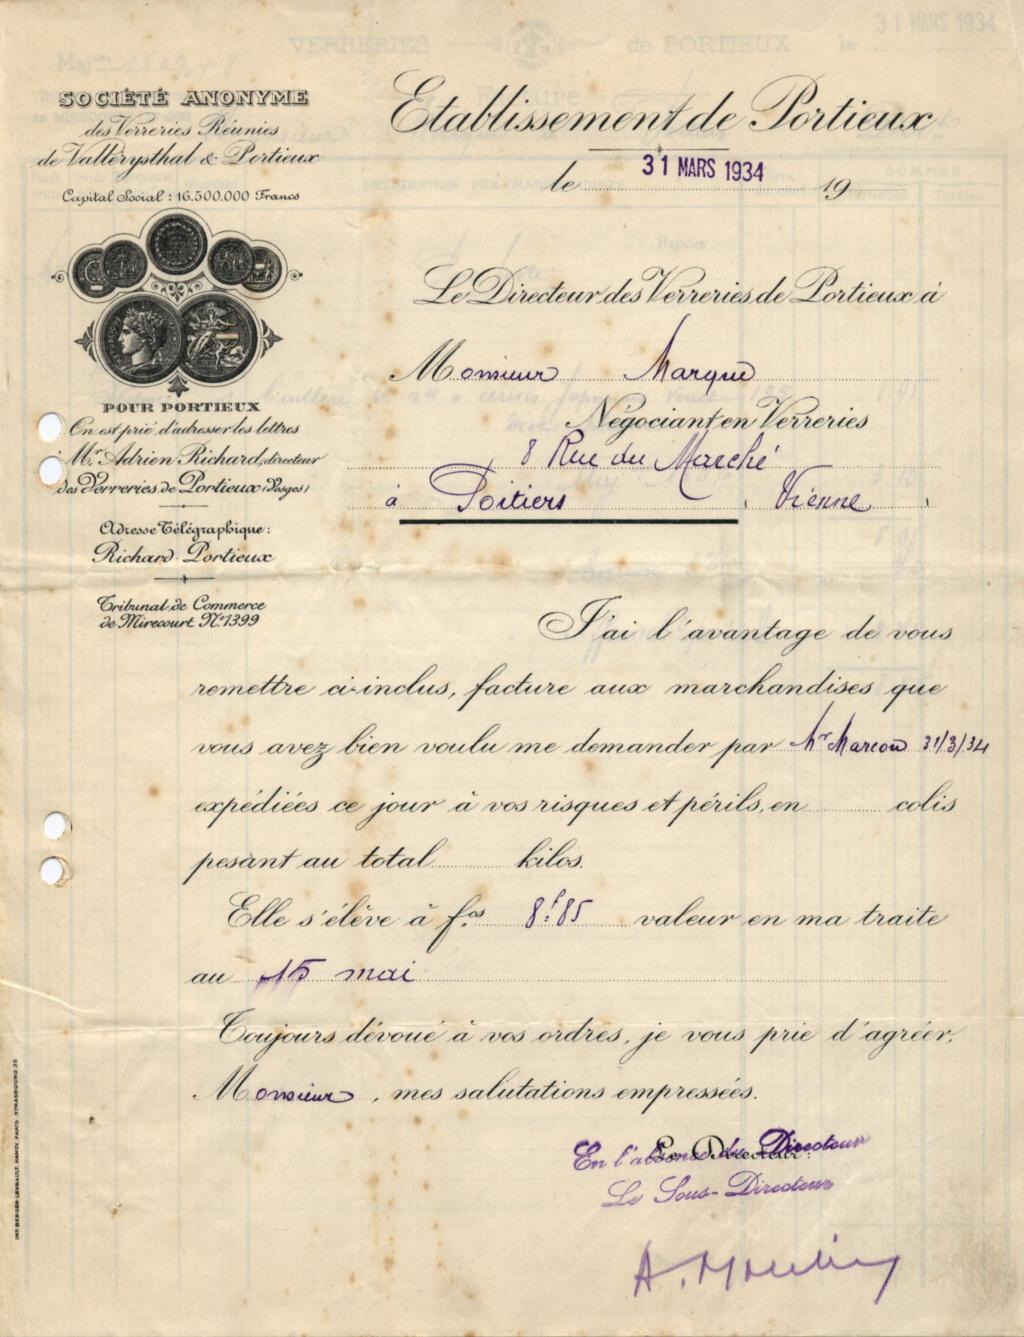 SOCIÉTÉ ANONYME
des Verreries Réunies
de Vallérysthal & Portieux
Capital Social : 16.500.000 Francs
POUR PORTIEUX
On est prié d'adresser les lettres
à Mr. Adrien Richard, directeur
des Verreries de Portieux (Vosges)
Adresse Télégraphique :
Richard-Portieux
Tribunal de Commerce
de Mirecourt No. 1399
VERRERIES de PORTIEUX le 31 MARS 1934
Etablissement de Portieux
le 31 MARS 1934 19
Le Directeur des Verreries de Portieux à
Monsieur Marque
Négociant en Verreries
8 Rue du Marché
à Poitiers, Vienne,
J'ai l'avantage de vous
remettre ci-inclus, facture aux marchandises que
vous avez bien voulu me demander par Mr Marcou 31/3/34
expédiées ce jour à vos risques et périls, en colis
pesant au total kilos.
Elle s'élève à fcs 8f.85 valeur en ma traite
au 15 mai
Toujours dévoué à vos ordres, je vous prie d'agréer,
Monsieur, mes salutations empressées.
Le Directeur.
En l'absence du Directeur
Le Sous-Directeur
IMP. BERGER-LEVRAULT, NANCY, PARIS, STRASBOURG. 33